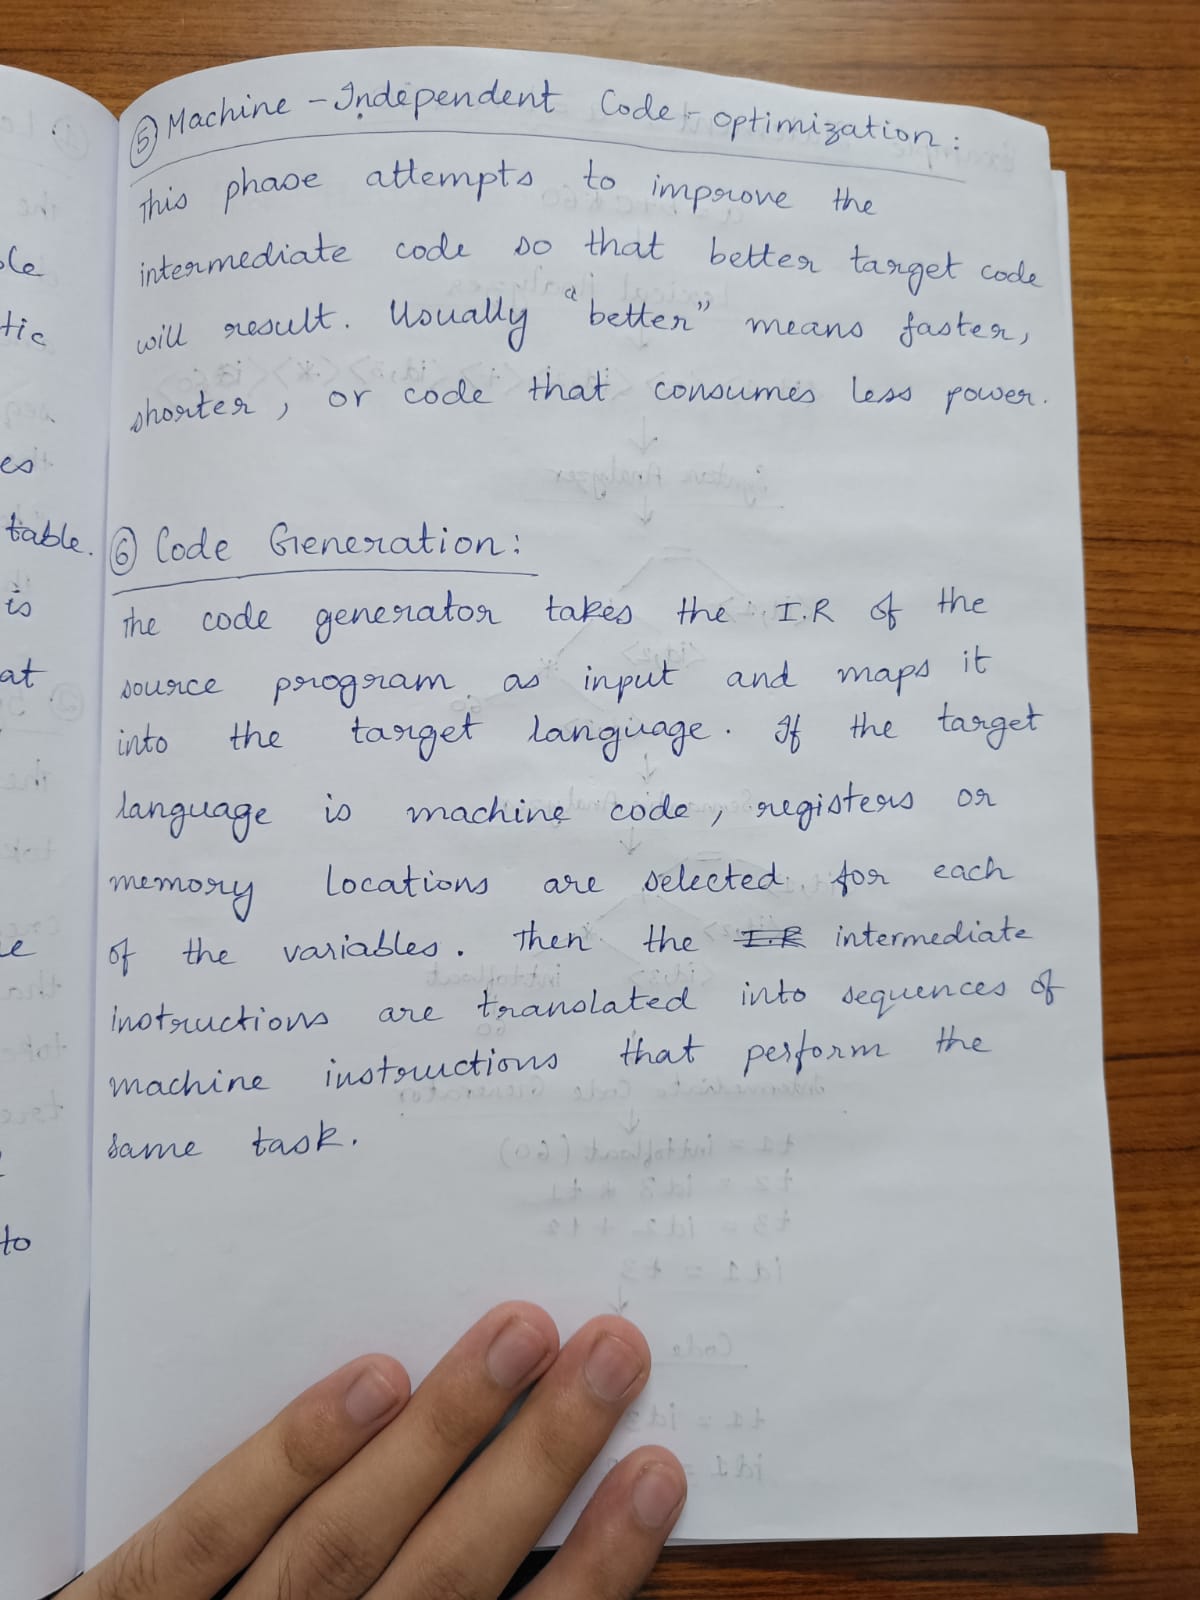 ⑤ Machine - Independent Code - optimization :
This phase attempts to improve the
intermediate code so that better target code
will result. Usually "better" means faster,
shorter, or code that consumes less power.
⑥ Code Generation :
The code generator takes the I.R of the
source program as input and maps it
into the target language. If the target
language is machine code, registers or
memory locations are selected for each
of the variables. Then the I.R intermediate
instructions are translated into sequences of
machine instructions that perform the
same task.
tic
es
table.
is
at
to